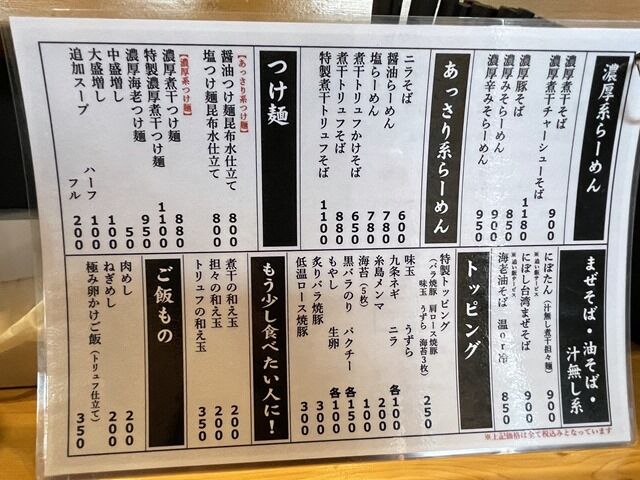 濃厚系らーめん
濃厚煮干そば 900
濃厚煮干チャーシューそば 1180
濃厚豚そば 850
濃厚みそらーめん 900
濃厚辛みそらーめん 950
あっさり系らーめん
ニラそば 600
醤油らーめん 780
塩らーめん 780
煮干トリュフかけそば 650
煮干トリュフそば 880
特製煮干トリュフそば 1100
つけ麺
【あっさり系つけ麺】
醤油つけ麺昆布水仕立て 800
塩つけ麺昆布水仕立て 800
【濃厚系つけ麺】
濃厚煮干つけ麺 880
特製濃厚煮干つけ麺 1100
濃厚海老つけ麺 950
中盛増し 50
大盛増し 100
追加スープ ハーフ 100
フル 200
まぜそば・油そば・汁無し系
にぼたん（汁無し煮干担々麺） 900
※追い飯サービス
にぼし台湾まぜそば 900
※追い飯サービス
海老油そば 温or冷 850
トッピング
特製トッピング 250
（バラ焼豚 肩ロース焼豚 味玉 うずら 海苔3枚）
味玉 うずら
九条ネギ ニラ 各100
糸島メンマ 200
海苔（5枚） 100
黒バラのり パクチー 各150
もやし 生卵 各100
炙りバラ焼豚 300
低温ロース焼豚 300
もう少し食べたい人に！
煮干の和え玉 200
担々の和え玉 200
トリュフの和え玉 350
ご飯もの
肉めし 200
ねぎめし 200
極み卵かけご飯（トリュフ仕立て） 350
※上記価格は全て税込みとなっています